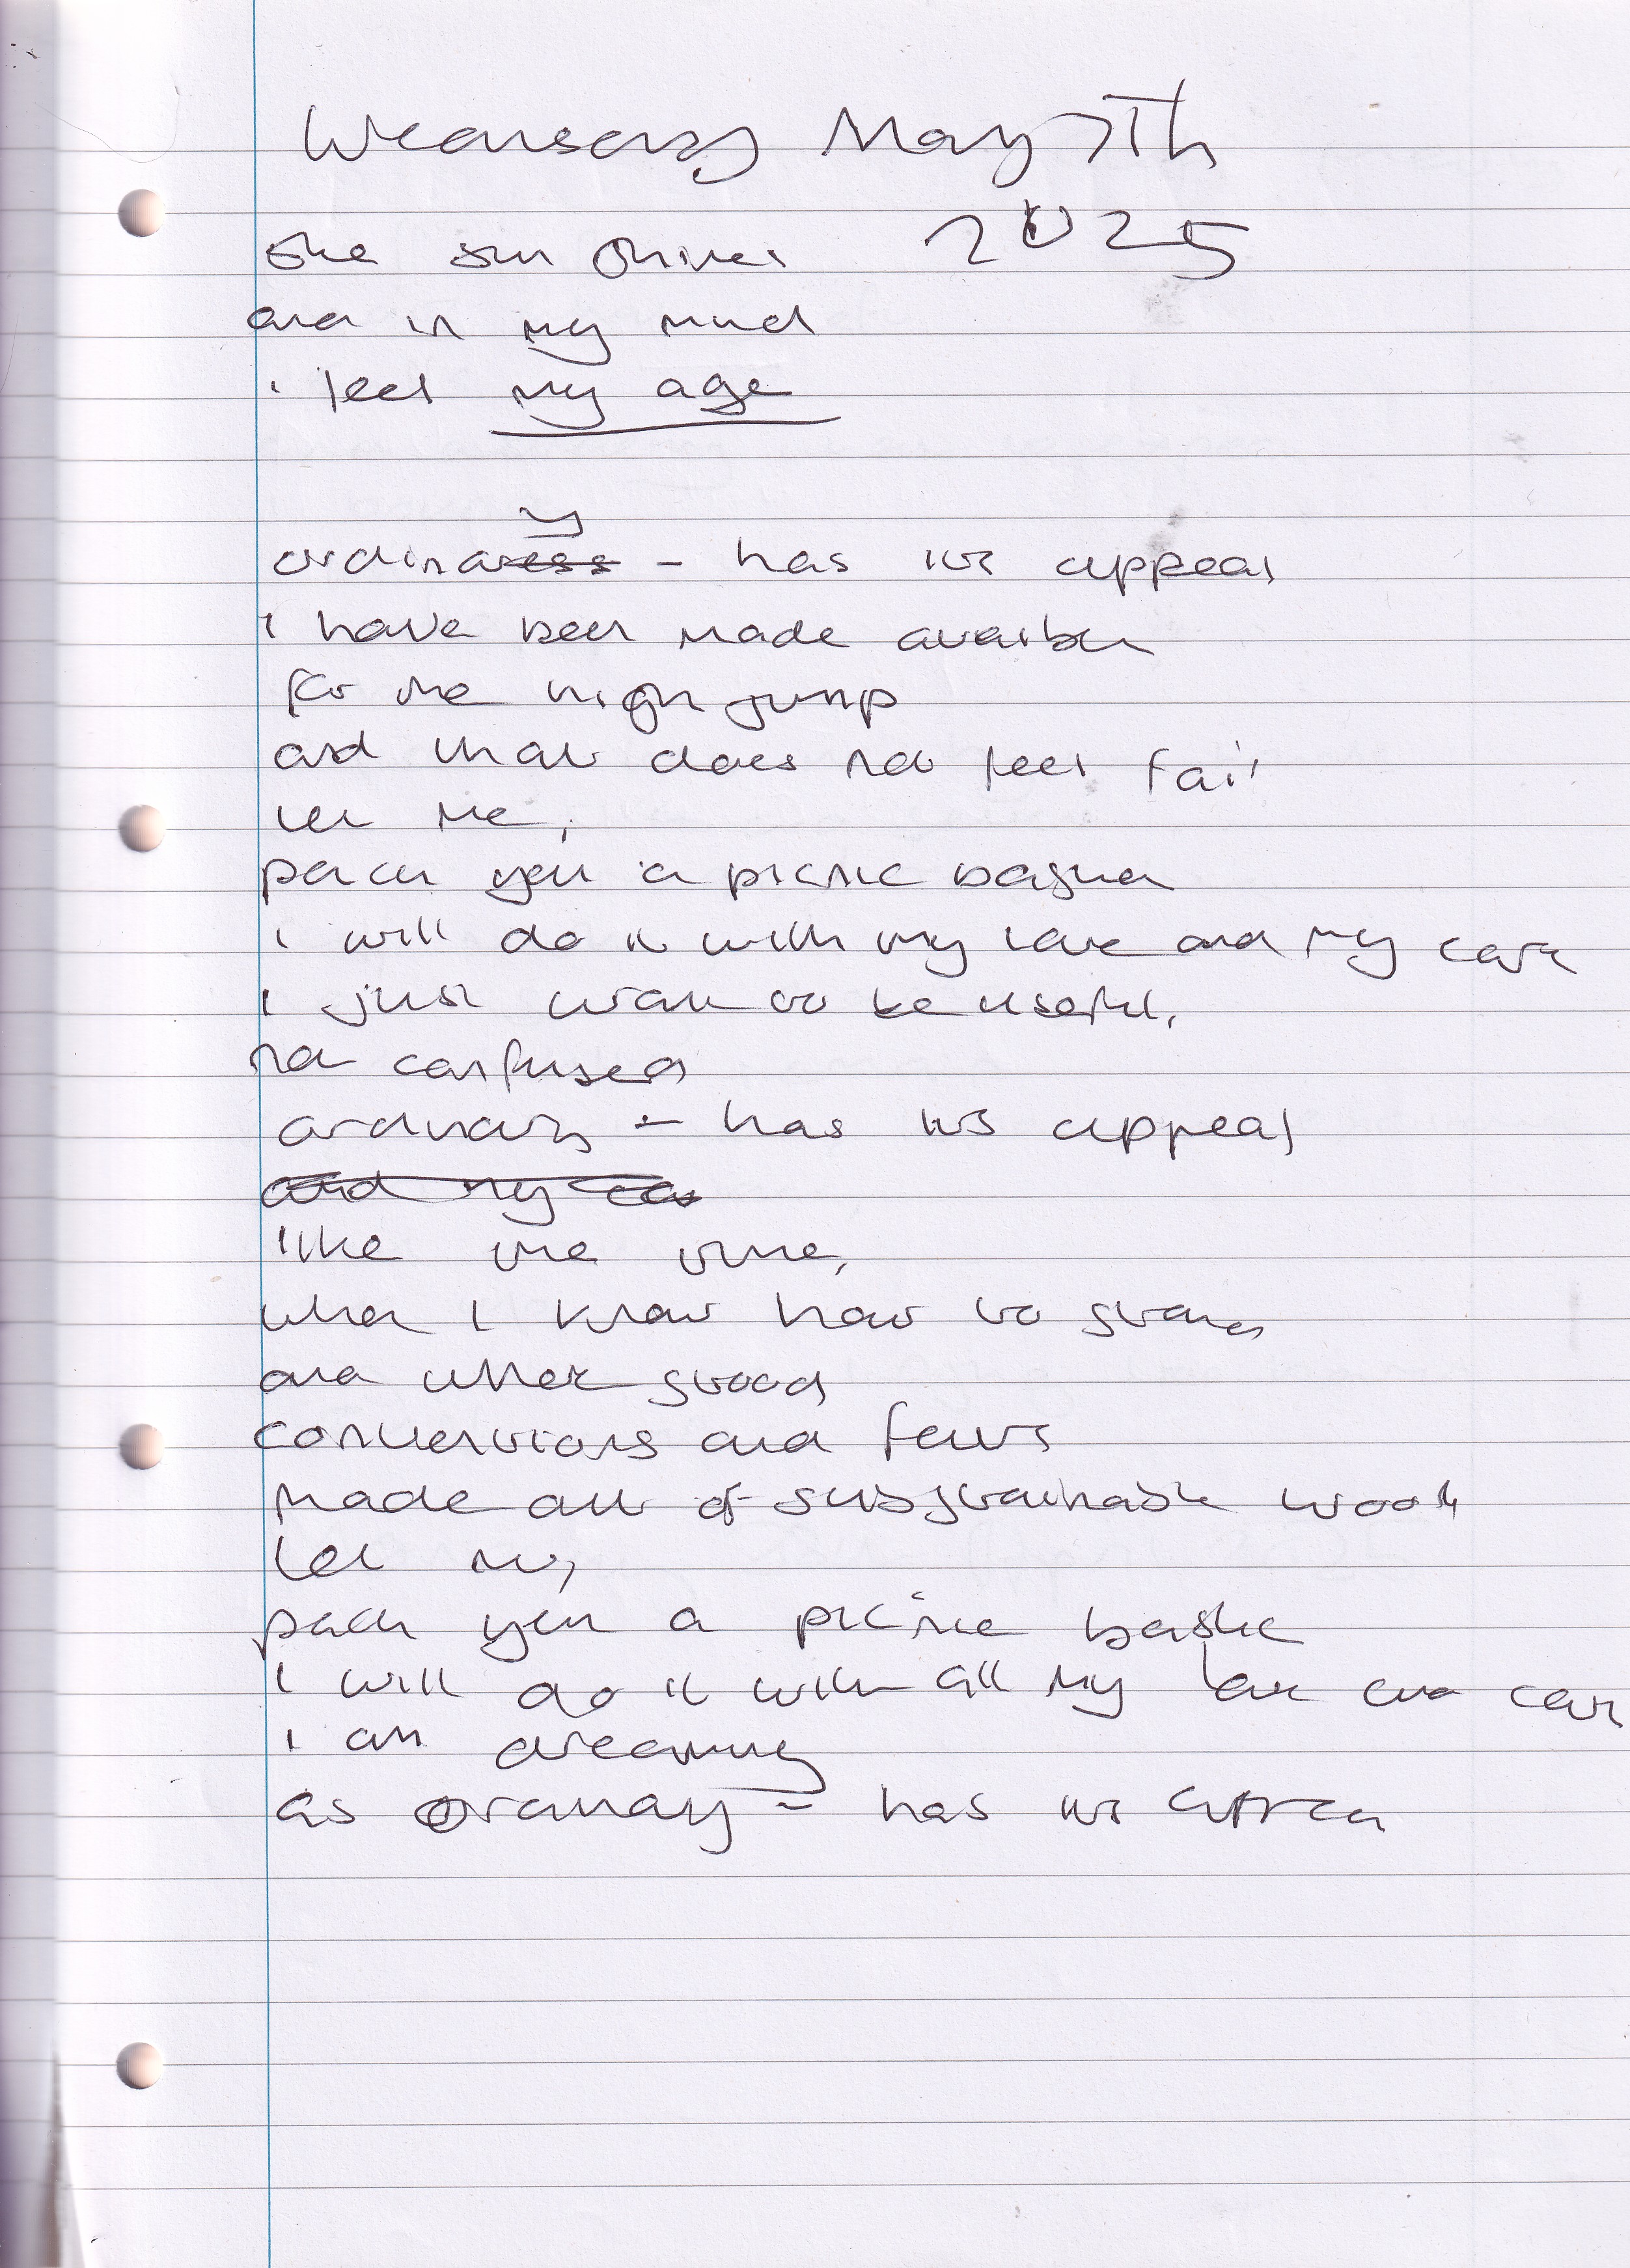 Wednesday May 7th
2025
the sun shines
and in my mind
i feel my age
ordinary - has its appeal
i have been made available
for the high jump
and that does not feel fair
let me,
pack you a picnic basket
i will do it with my love and my care
i just want to be useful,
not confused
ordinary - has its appeal
and my
like the time,
when i know how to stand
and where stood
conventions and
made out of sustainable wood
let me,
pack you a picnic basket
i will do it with all my love and care
i am dreaming
as ordinary - has its appeal